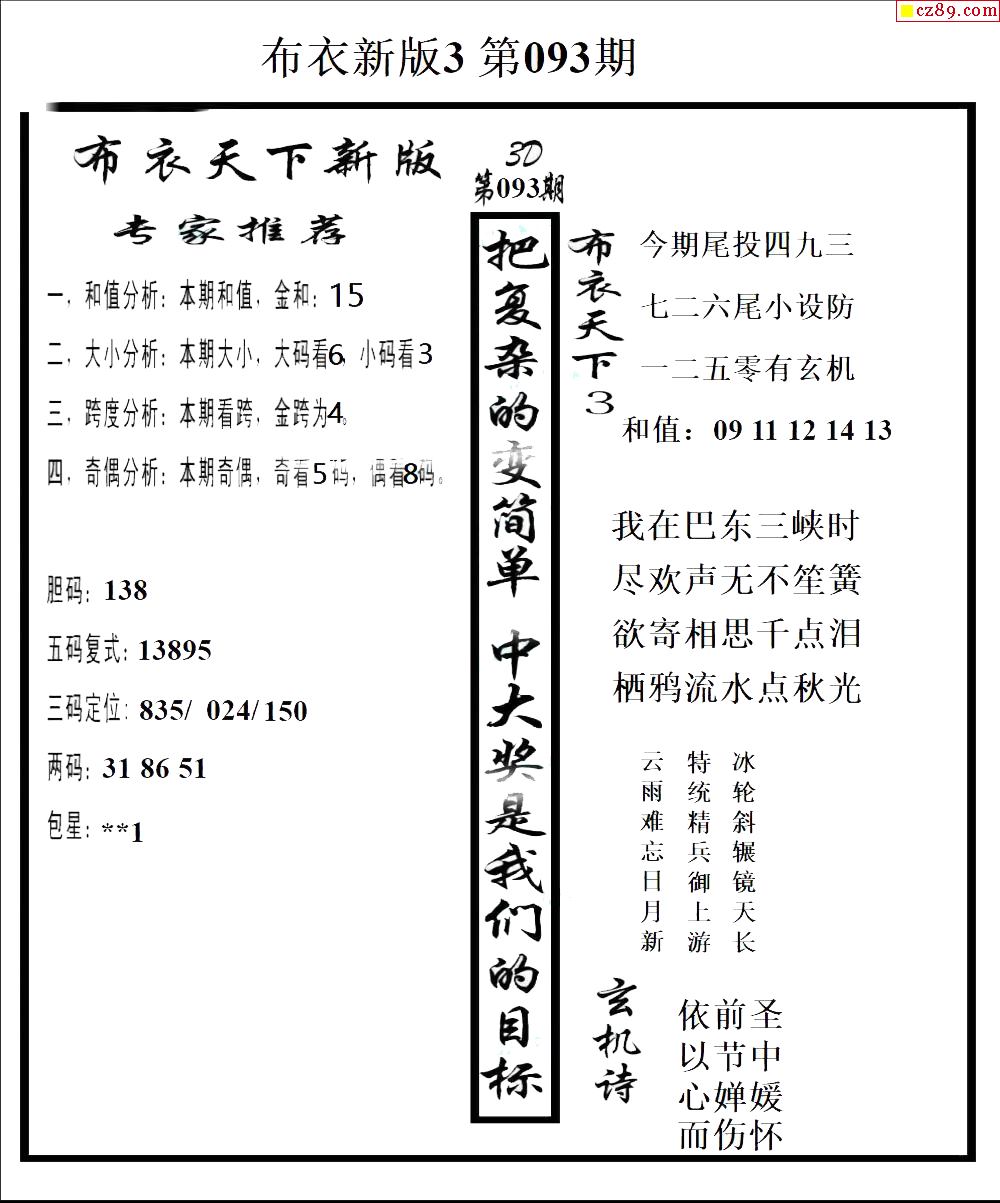 cz89.com
布衣新版3 第093期
布衣天下新版
专家推荐
一，和值分析：本期和值，金和：15
二，大小分析：本期大小，大码看6，小码看3
三，跨度分析：本期看跨，金跨为4。
四，奇偶分析：本期奇偶，奇看5码，偶看8码。
胆码：138
五码复式：13895
三码定位：835/ 024/150
两码：31 86 51
包星：**1
3D
第093期
把复杂的变简单 中大奖是我们的目标
布衣天下3
今期尾投四九三
七二六尾小设防
一二五零有玄机
和值：09 11 12 14 13
我在巴东三峡时
尽欢声无不笙簧
欲寄相思千点泪
栖鸦流水点秋光
云雨难忘日月新
特统精兵御上游
冰轮斜辗镜天长
玄机诗
依前圣
以节中
心婵媛
而伤怀